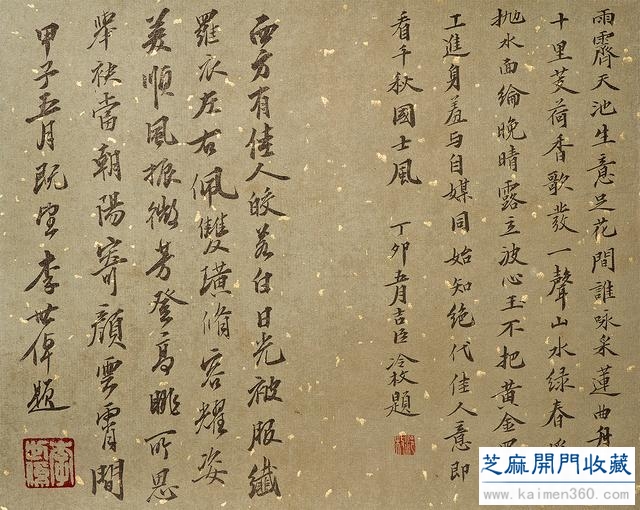 雨霽天池生意足花間誰咏采蓮曲舟
十里芰荷香歌發一聲山水綠春
抛水面綸晚晴露立波心玉不把黃金買
工進身羞与自媒同始知絶代佳人意即
看千秋國士風
丁卯五月吉臣冷枚題
西方有佳人皎若白日光被服纖
羅衣左右佩雙璜脩容耀姿
美順風振微芳登高眺所思
舉袂當朝陽寄顏雲霄間
甲子五月既望李世倬題
芝麻開門收藏
www.kaimen360.com